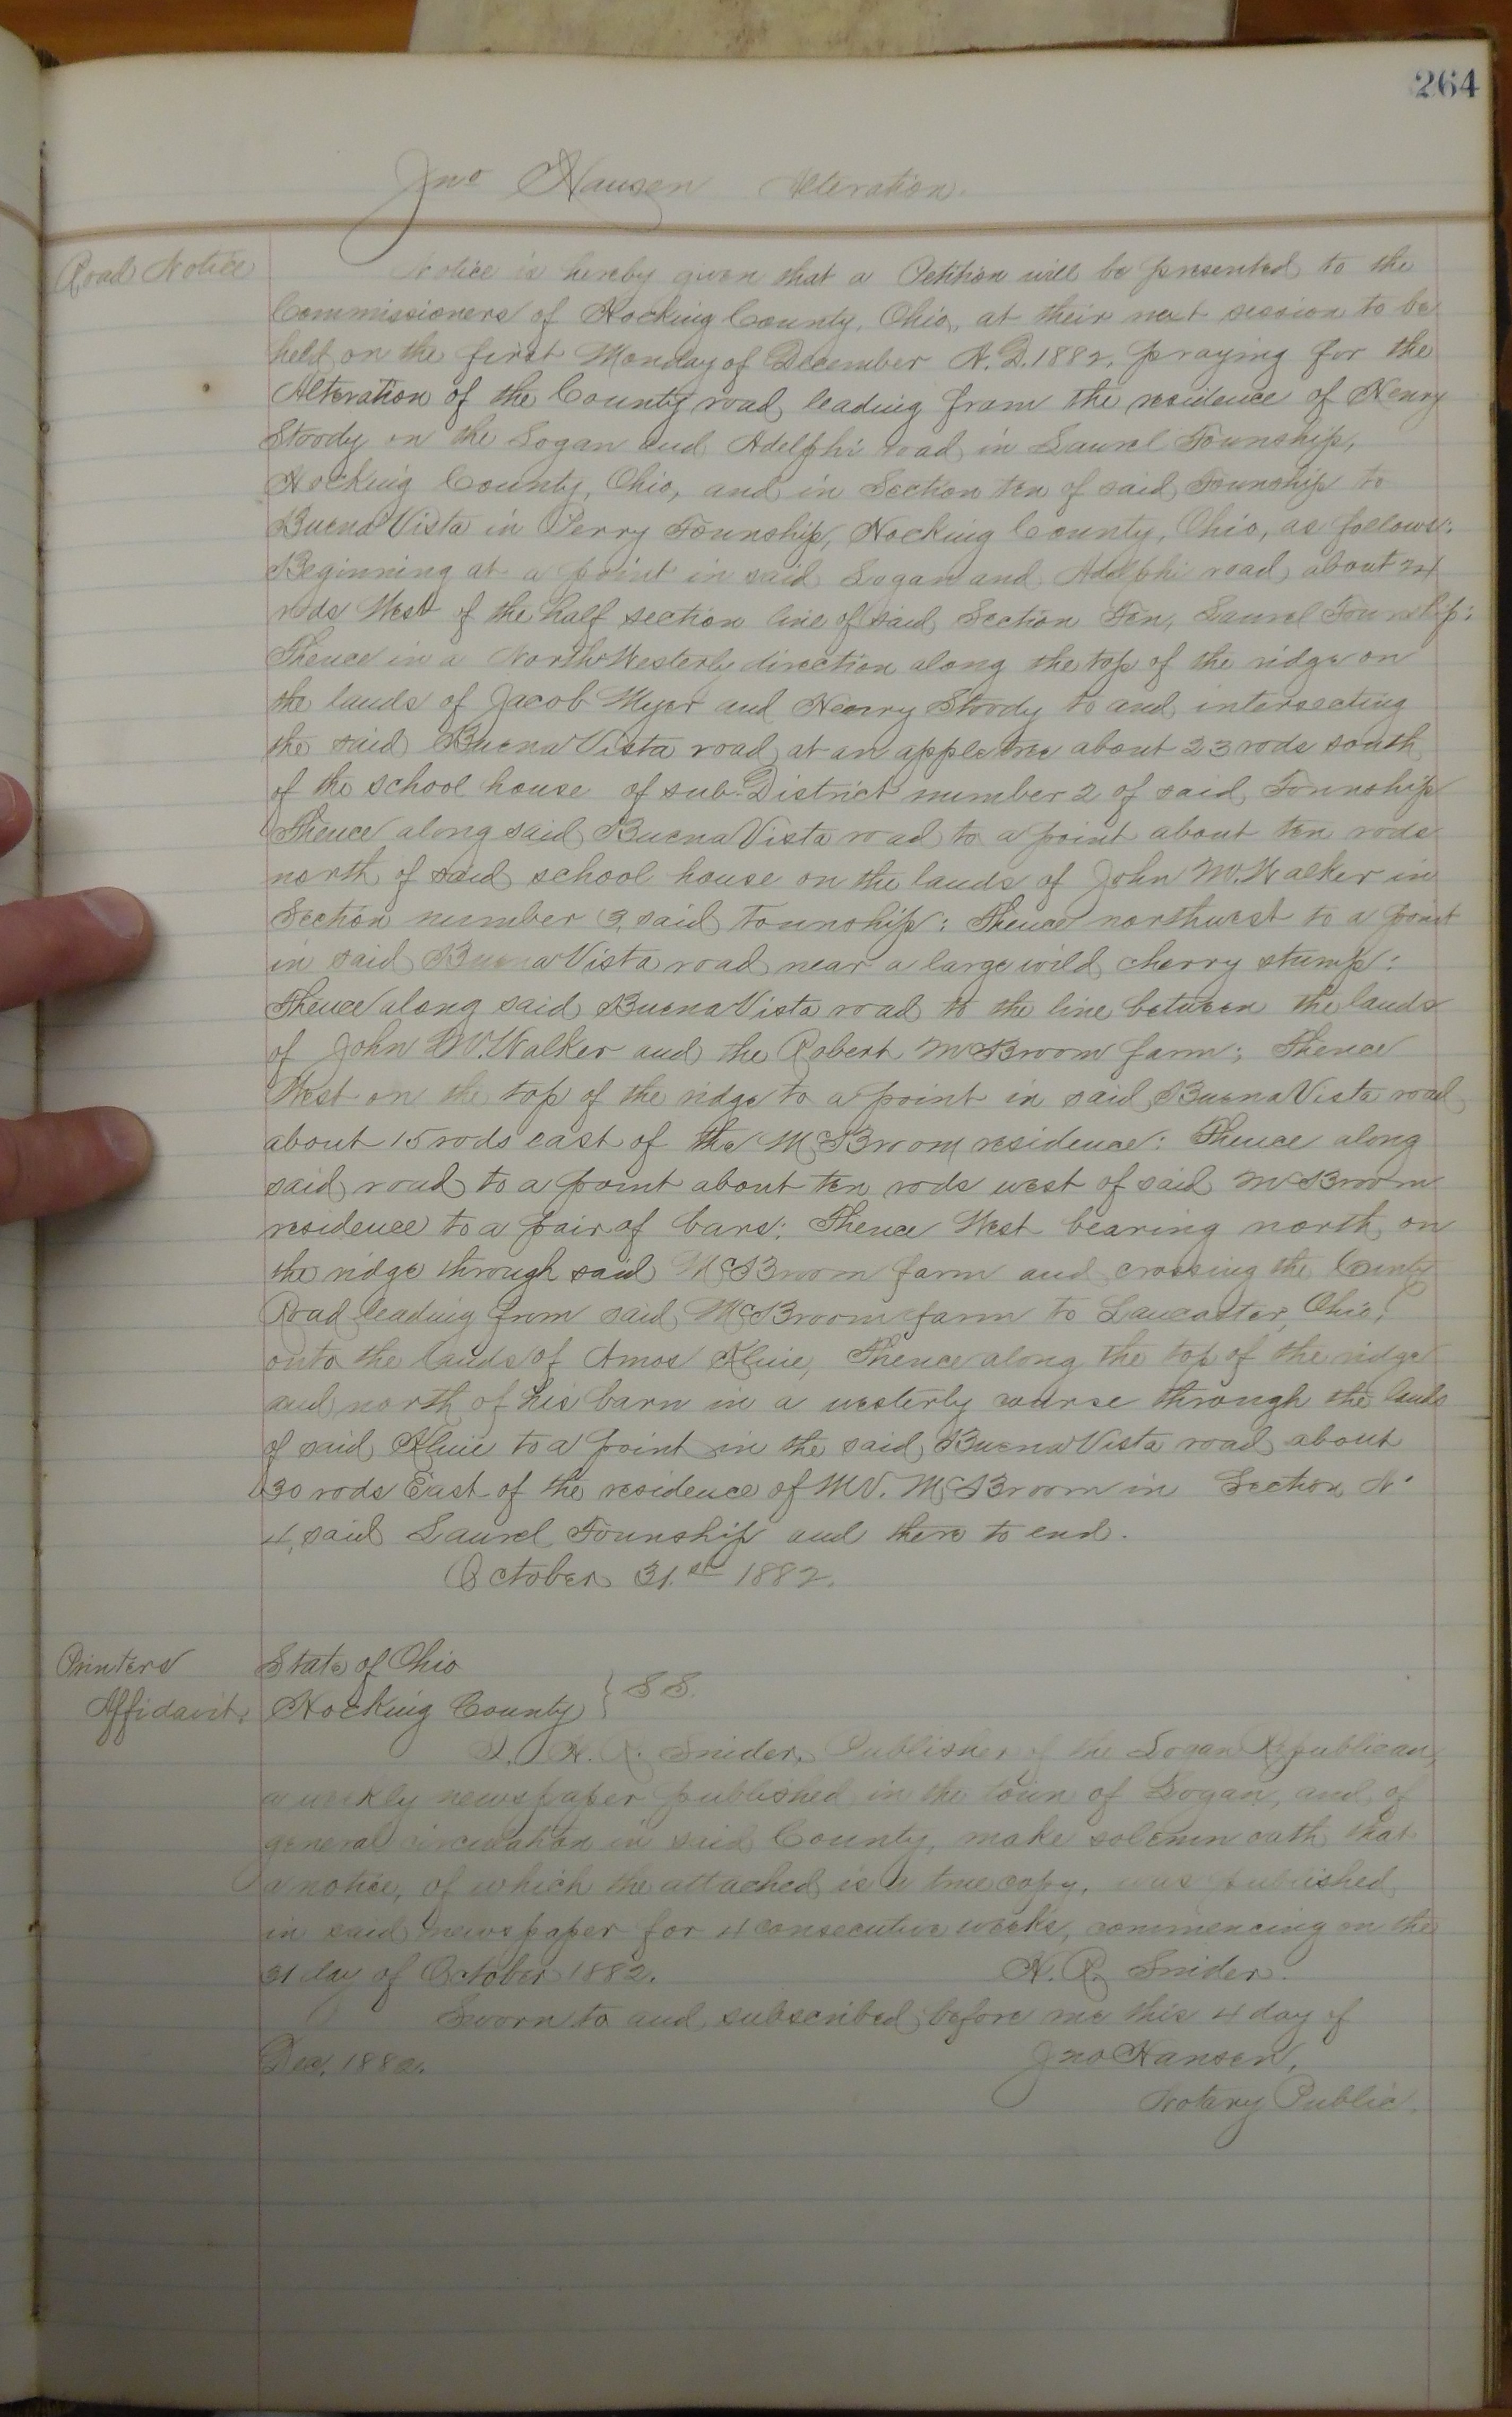 264
Jno Hansen Alteration.
Road Notice
Notice is hereby given that a Petition will be presented to the
Commissioners of Hocking County, Ohio, at their next session to be
held on the first Monday of December A.D. 1882, praying for the
Alteration of the County road leading from the residence of Henry
Stoody on the Logan and Adelphi road in Laurel Township,
Hocking County, Ohio, and in Section ten of said Township to
Buena Vista in Perry Township, Hocking County, Ohio, as follows:
Beginning at a point in said Logan and Adelphi road about 24
rods West of the half section line of said Section Ten, Laurel Township;
Thence in a North Westerly direction along the top of the ridge on
the lands of Jacob Myer and Henry Stoody to and intersecting
the said Buena Vista road at an apple tree about 23 rods south
of the school house of sub-District number 2 of said Township
Thence along said Buena Vista road to a point about ten rods
north of said school house on the lands of John W. Walker in
Section number 3, said township; Thence northwest to a point
in said Buena Vista road near a large wild cherry stump:
Thence along said Buena Vista road to the line between the lands
of John W. Walker and the Robert McBroom farm; Thence
West on the top of the ridge to a point in said Buena Vista road
about 15 rods east of the McBroom residence: Thence along
said road to a point about ten rods west of said McBroom
residence to a pair of bars; Thence West bearing north on
the ridge through said McBroom farm and crossing the County
Road leading from said McBroom farm to Lancaster, Ohio,
onto the lands of Amos Thence along the top of the ridge
and north of his barn in a westerly course through the lands
of said to a point in the said Buena Vista road about
30 rods East of the residence of Mc.Broom in Section No
4, said Laurel Township and there to end.
October 31.st 1882.
Printers
Affidavit.
State of Ohio
Hocking County } SS.
I, H. R. Snider, Publisher of the Logan Republican,
a weekly newspaper published in the town of Logan, and of
general circulation in said County, make solemn oath that
a notice, of which the attached is a true copy, was published
in said newspaper for 4 consecutive weeks, commencing on the
31 day of October 1882. H. R. Snider.
Sworn to and subscribed before me this 4 day of
Dec. 1882. Jno Hansen,
Notary Public.